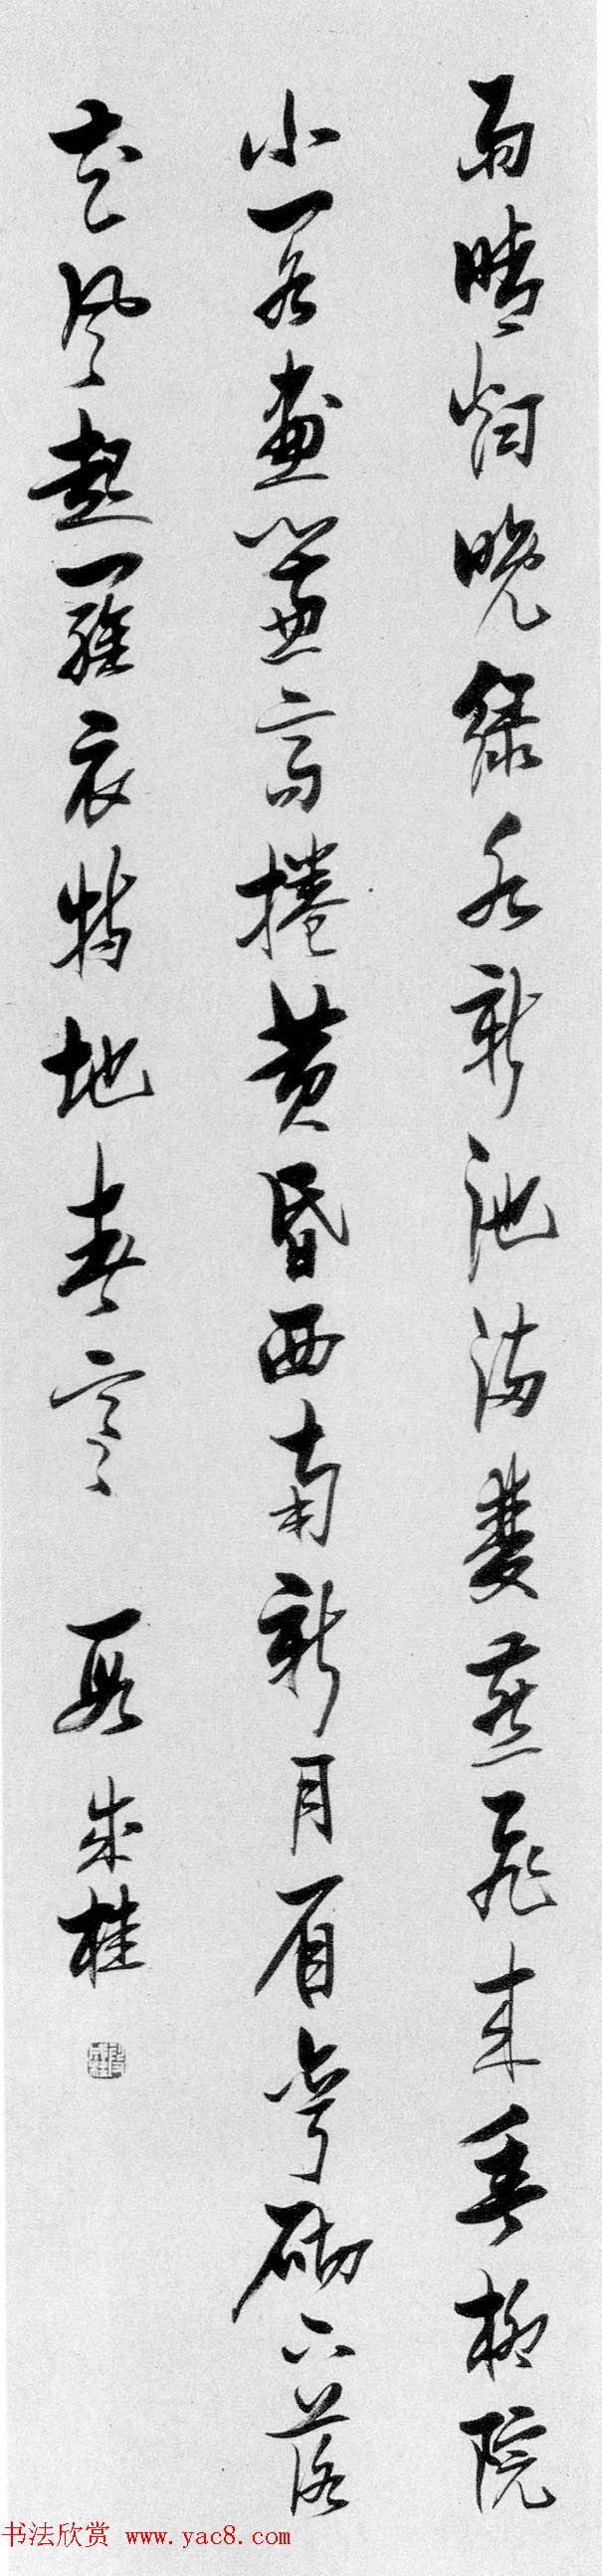 雨晴烟晚綠水新池滿雙燕飛来垂柳院
小閣畫簾高捲黄昏西南新月眉彎砌下落
花風起羅衣特地春寒 段成桂
书法欣赏 www.yac8.com